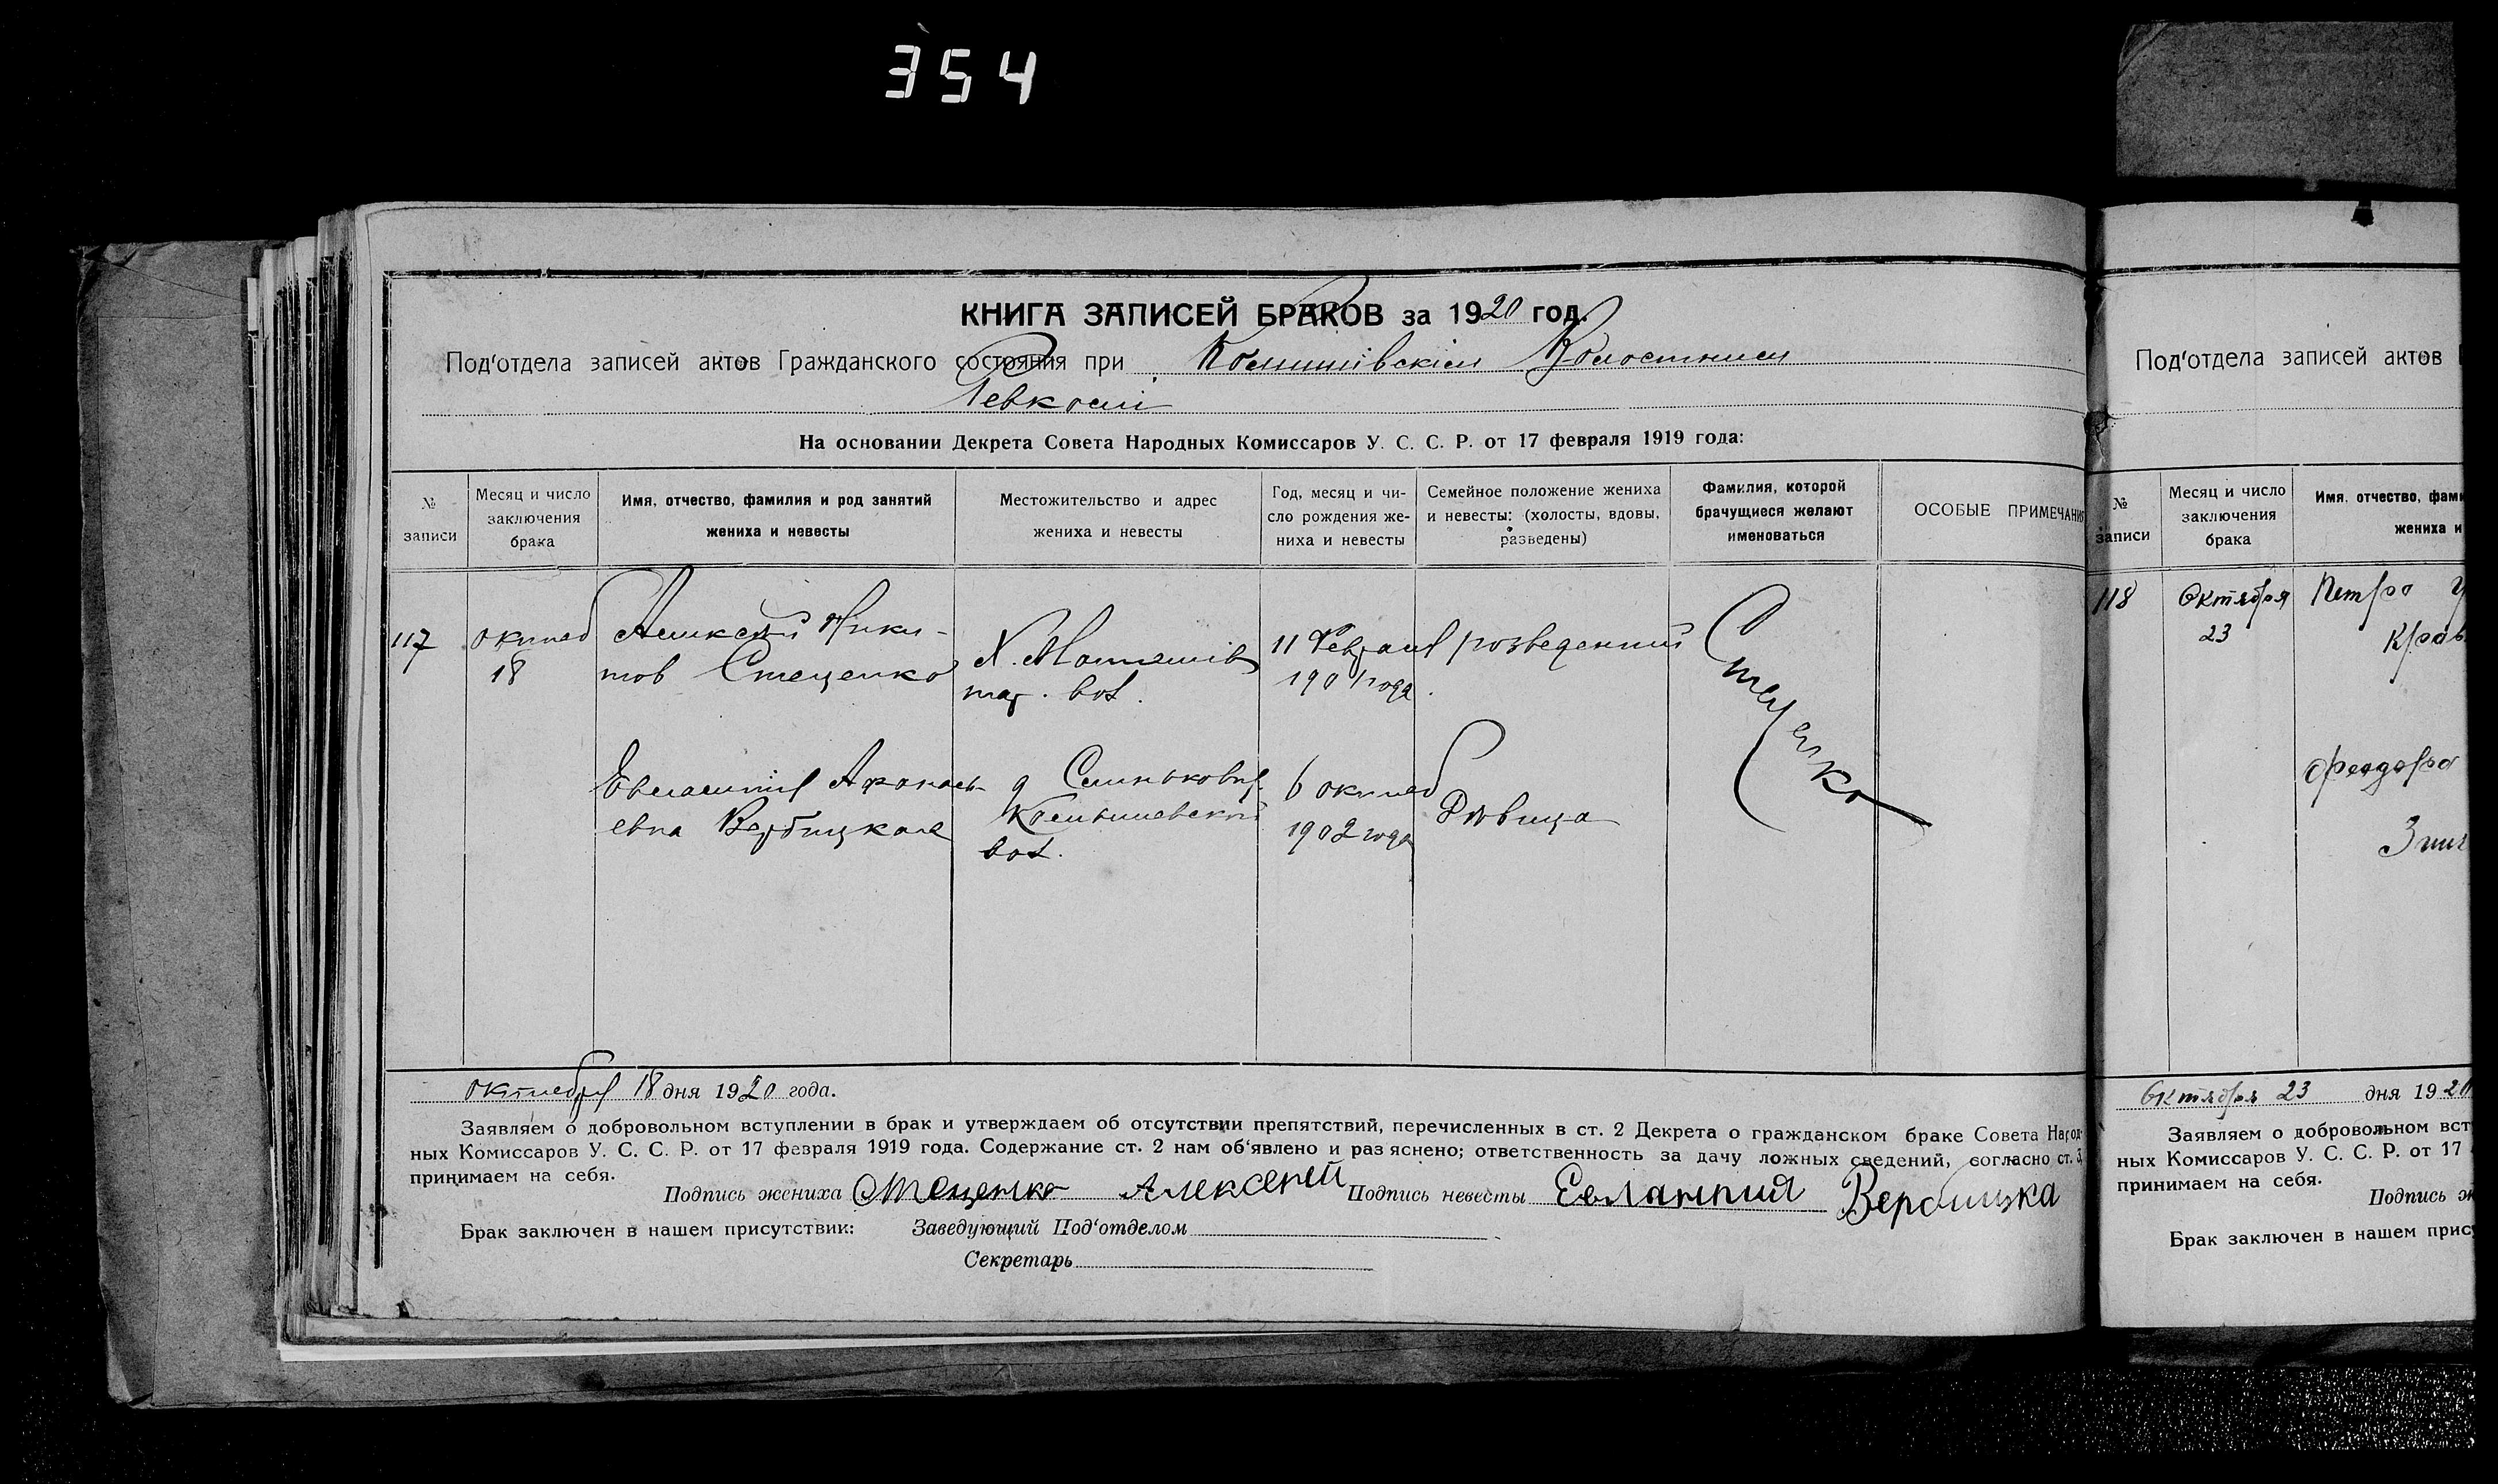 354
КНИГА ЗАПИСЕЙ БРАКОВ за 1920 год.
Под'отдела записей актов Гражданского состояния при Комишівскім Волостним
Ревкомі
На основании Декрета Совета Народных Комиссаров У. С. С. Р. от 17 февраля 1919 года:
№ записи
Месяц и число заключения брака
Имя, отчество, фамилия и род занятий жениха и невесты
Местожительство и адрес жениха и невесты
Год, месяц и число рождения жениха и невесты
Семейное положение жениха и невесты: (холосты, вдовы, разведены)
Фамилия, которой брачущиеся желают именоваться
ОСОБЫЕ ПРИМЕЧАНИ
117
октяб
18
Алексей Ники-
тов Стеценко
Х.
вол.
11 Февраля
1901 года.
розведенный
Стеценко
Евлампия Афанась-
евна Вербицкая
д
вол.
6 октяб
1902 года
Дѣвица
октября 18 дня 1920 года.
Заявляем о добровольном вступлении в брак и утверждаем об отсутствии препятствий, перечисленных в ст. 2 Декрета о гражданском браке Совета Народ-
ных Комиссаров У. С. С. Р. от 17 февраля 1919 года. Содержание ст. 2 нам об'явлено и раз яснено; ответственность за дачу ложных сведений, согласно ст. 3,
принимаем на себя.
Подпись жениха Стеценко Алексей Подпись невесты Евлампия Вербицка
Брак заключен в нашем присутствии: Заведующий Под'отделом
Секретарь
Под'отдела записей актов
№ записи
Месяц и число заключения брака
Имя, отчество, фами
жениха и
118
Октября
23
Петро
Крав
Феодора
Октября 23 дня 1920
Заявляем о добровольном вст
ных Комиссаров У. С. С. Р. от 17
принимаем на себя.
Подпись ж
Брак заключен в нашем прису